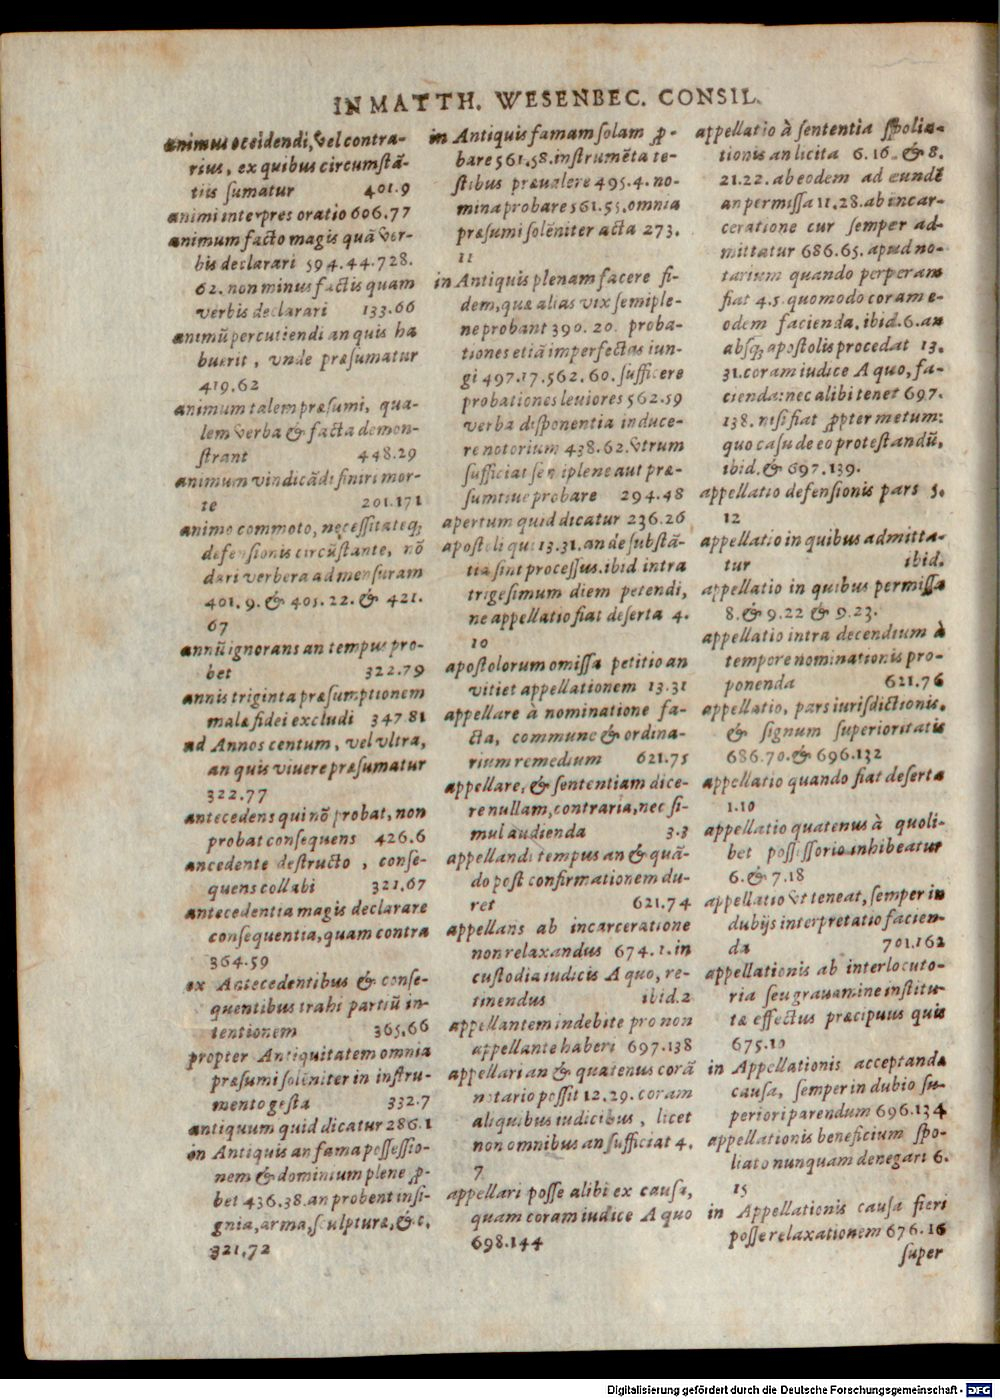 IN MATTH. WESENBEC. CONSIL.
animus occidendi, vel contra-
rius, ex quibus circumstã-
tiis sumatur 401.9
animi interpres oratio 606.77
animum facto magis quã ver-
bis declarari 594.44.728.
62. non minus factis quam
verbis declarari 133.66
animũ percutiendi an quis ha
buerit, vnde præsumatur
419.62
animum talem præsumi, qua-
lem verba & facta demon-
strant 448.29
animum vindicãdi finiri mor-
te 201.171
animo commoto, necessitateq;
defensionis circũstante, nõ
dari verbera ad mensuram
401.9. & 405.22. & 421.
67
annũ ignorans an tempus pro-
bet 322.79
annis triginta præsumptionem
malæ fidei excludi 347.81
ad Annos centum, vel vltra,
an quis vivere præsumatur
322.77
antecedens qui nõ probat, non
probat consequens 426.6
ancedente destructo, conse-
quens collabi 321.67
antecedentia magis declarare
consequentia, quam contra
364.59
ex Antecedentibus & conse-
quentibus trahi partiũ in-
tentionem 365.66
propter Antiquitatem omnia
præsumi solẽniter in instru-
mento gesta 332.7
antiquum quid dicatur 286.1
in Antiquis an fama possessio-
nem & dominium plene ꝓ-
bet 436.38. an probent insi-
gnia, arma, sculpturæ, &c.
321.72
in Antiquis famam solam ꝓ-
bare 561.58. instrumẽta te-
stibus prævalere 495.4. no-
mina probare 561.55. omnia
præsumi solẽniter acta 273.
11
in Antiquis plenam facere fi-
dem, quæ alias vix semiple-
ne probant 390.20. proba-
tiones etiã imperfectas iun-
gi 497.17.562.60. sufficere
probationes leuiores 562.59
verba disponentia induce-
re notorium 438.62. vtrum
sufficiat semiplene aut præ-
sumtiue probare 294.48
apertum quid dicatur 236.26
apostoli qui 13.31. an de substã-
tia sint processus. ibid intra
trigesimum diem petendi,
ne appellatio fiat deserta 4.
10
apostolorum omissa petitio an
vitiet appellationem 13.31
appellare à nominatione fa-
cta, commune & ordina-
rium remedium 621.75
appellare, & sententiam dice-
re nullam, contraria, nec si-
mul audienda 3.3
appellandi tempus an & quã-
do post confirmationem du-
ret 621.74
appellans ab incarceratione
non relaxandus 674.1. in
custodia iudicis A quo, re-
tinendus ibid.2
appellantem indebite pro non
appellante haberi 697.138
appellari an & quatenus corã
notario possit 12.29. coram
aliquibus iudicibus, licet
non omnibus an sufficiat 4.
7
appellari posse alibi ex causa,
quam coram iudice A quo
698.144
appellatio à sententia spolia-
tionis an licita 6.16. & 8.
21.22. ab eodem ad eundẽ
an permissa 11.28. ab incar-
ceratione cur semper ad-
mittatur 686.65. apud no-
tarium quando perperam
fiat 4.5. quomodo coram e-
odem facienda. ibid.6. an
absq; apostolis procedat 13.
31. coram iudice A quo, fa-
cienda: nec alibi tenet 697.
138. nisi fiat ꝓpter metum:
quo casu de eo protestandũ,
ibid. & 697.139.
appellatio defensionis pars 5.
12
appellatio in quibus admitta-
tur ibid.
appellatio in quibus permissa
8. & 9.22 & 9.23.
appellatio intra decendium à
tempore nominationis pro-
ponenda 621.76
appellatio, pars iurisdictionis.
& signum superioritatis
686.70. & 696.132
appellatio quando fiat deserta
1.10
appellatio quatenus à quoli-
bet possessorio inhibeatur
6. & 7.18
appellatio vt teneat, semper in
dubijs interpretatio facien-
da 701.162
appellationis ab interlocuto-
ria seu grauamine institu-
tæ effectus præcipuus quis
675.10
in Appellationis acceptanda
causa, semper in dubio su-
periori parendum 696.134
appellationis beneficium spo-
liato nunquam denegari 6.
15
in Appellationis causa fieri
posse relaxationem 676.16
super
Digitalisierung gefördert durch die Deutsche Forschungsgemeinschaft - DFG